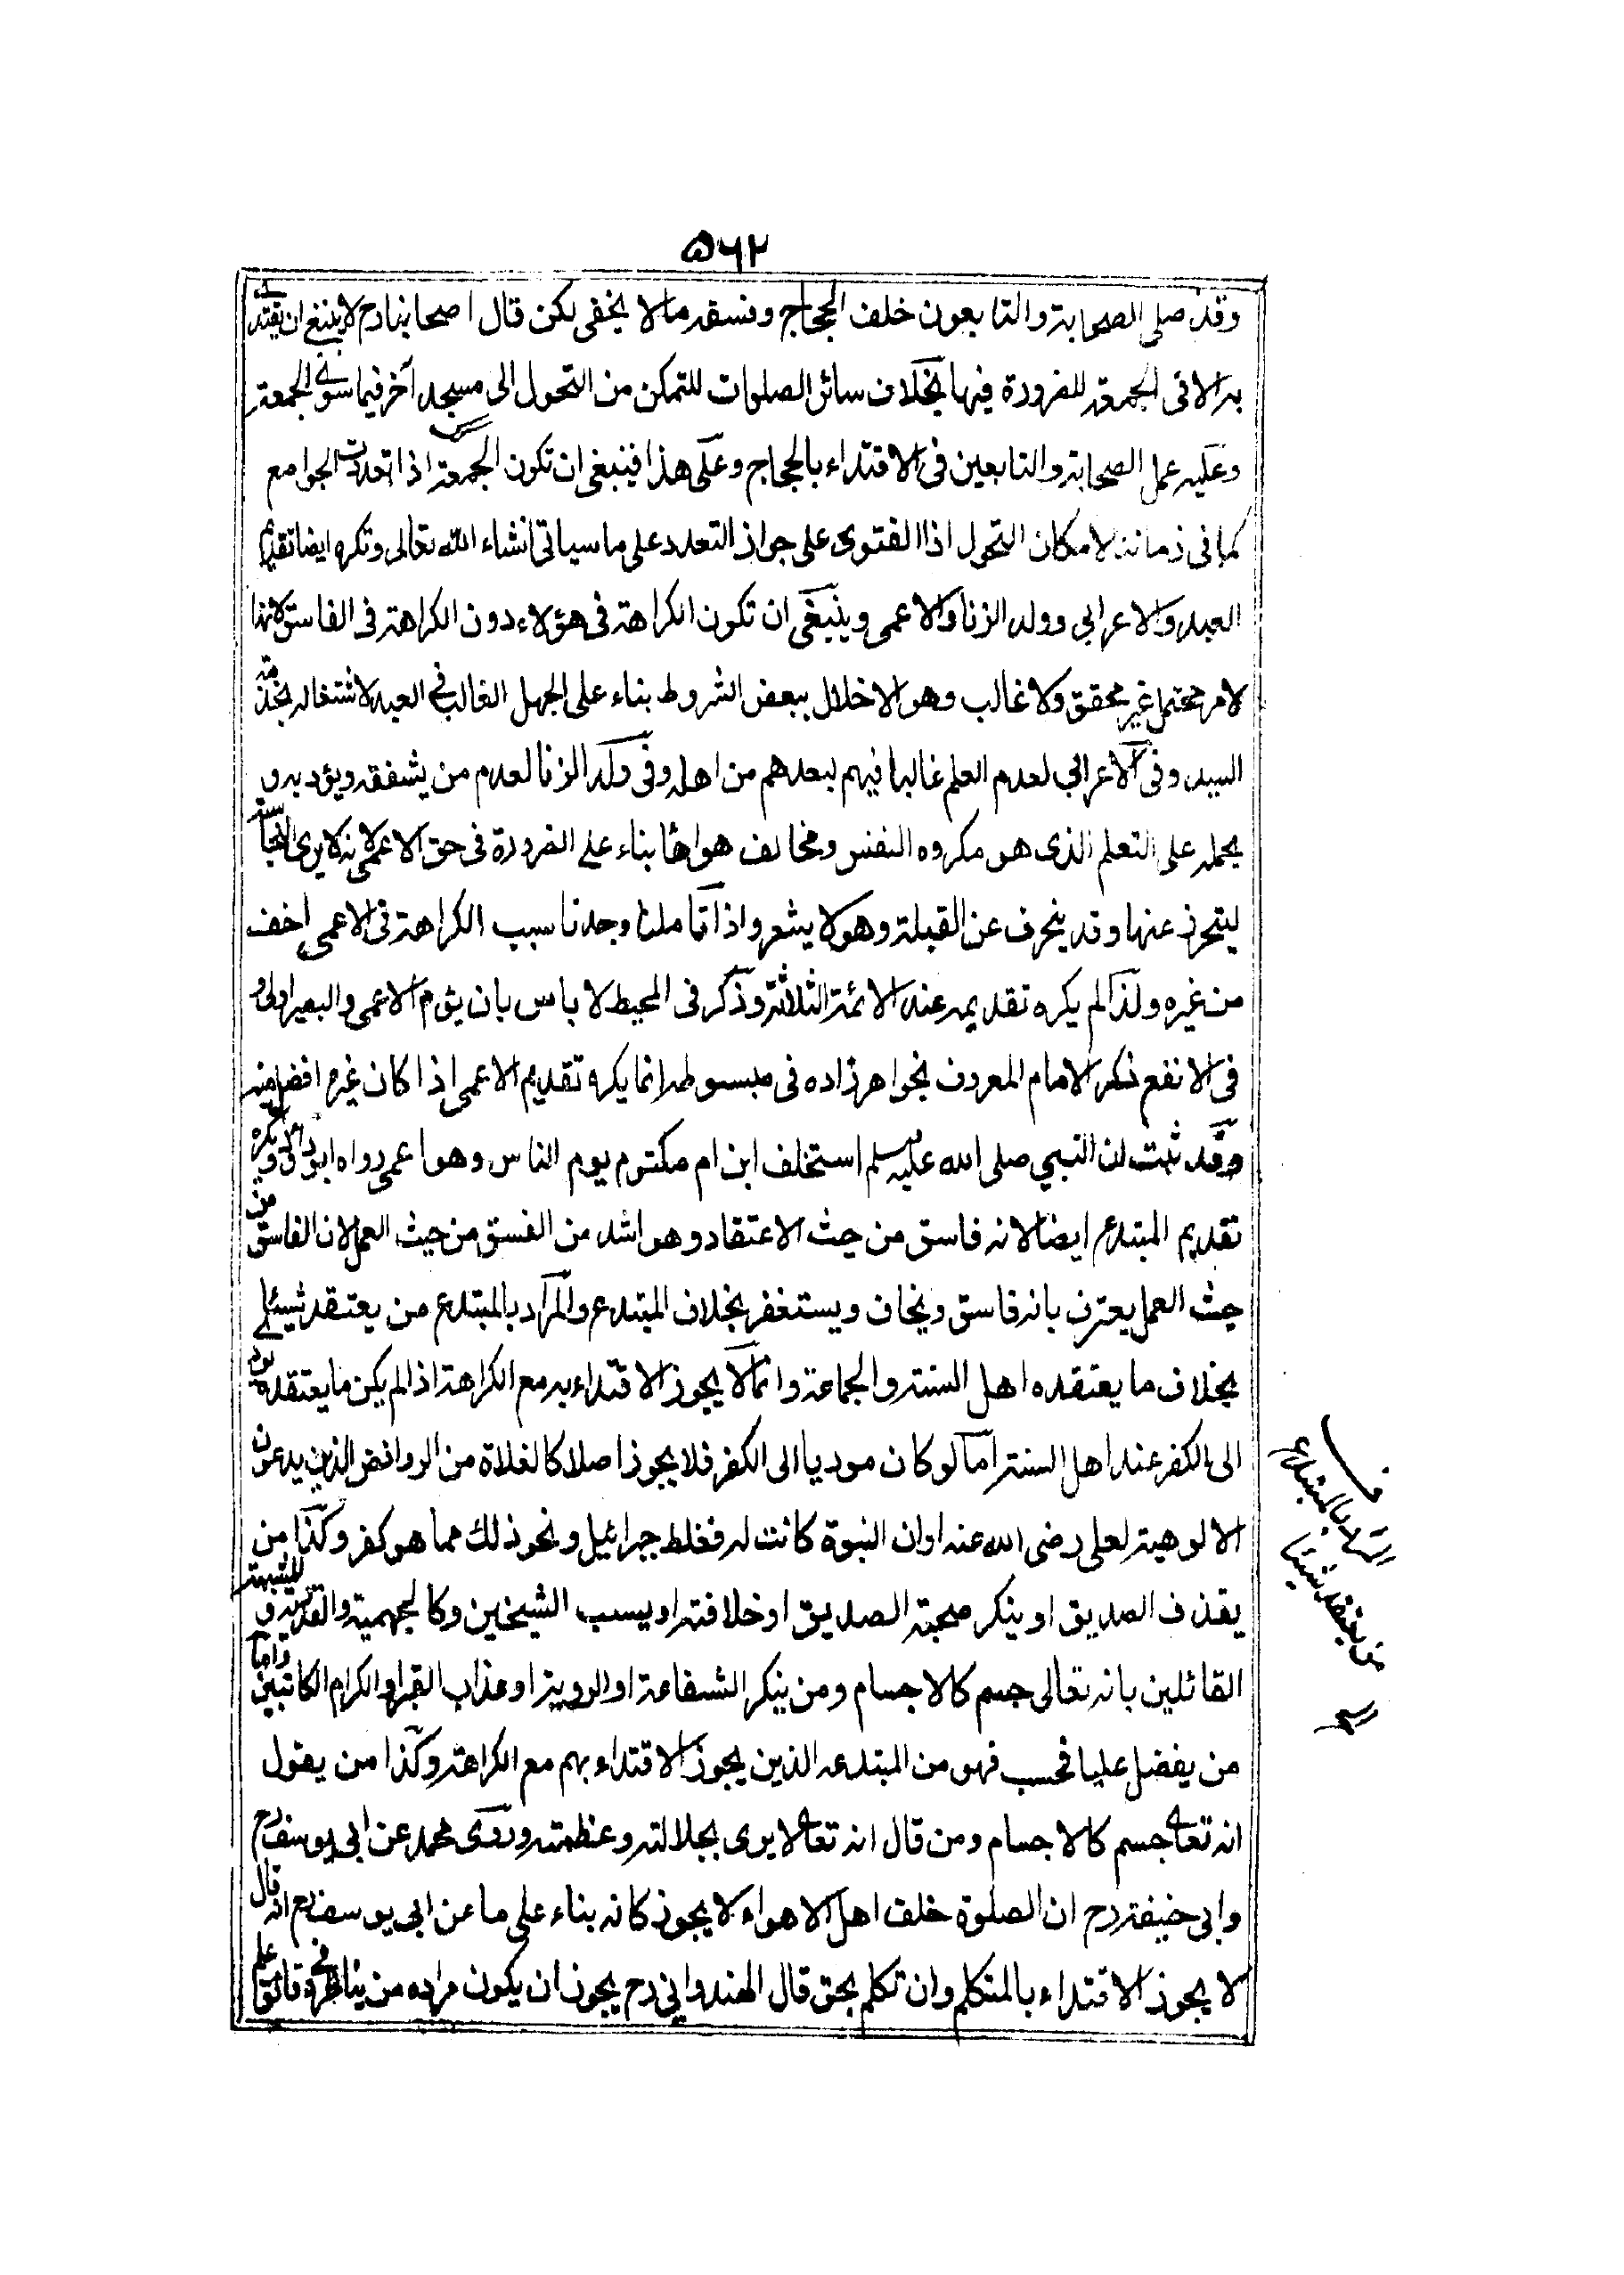 ٥٦٢
وقد صلى الصحابة والتابعون خلف الحجاج وفسقه مالا يخفى لكن قال اصحابنا رح لا ينبغي ان يقتدى
به الا فى الجمعة للضرورة فيها بخلاف سائر الصلوات للتمكن من التحول الى مسجد آخر فيما سوى الجمعة
وعليه عمل الصحابة والتابعين فى الاقتداء بالحجاج وعلى هذا فينبغى ان تكره الجمعة اذا تعددت الجوامع
كما فى زماننا لامكان التحول اذ الفتوى على جواز التعدد على ما سياتى انشاء الله تعالى وتكره ايضا تقديم
العبد والاعرابي وولد الزنا والاعمى وينبغى ان تكون الكراهة فى هؤلاء دون الكراهة فى الفاسق لانها
لامر محتمل غير محقق ولا غالب وهو الاخلال ببعض الشروط بناء على الجهل الغالب فى العبد لاشتغاله بخدمة
السيد وفى الاعرابي لعدم العلم غالبا فيهم لبعدهم من اهله وفى ولد الزنا لعدم من يشفقه ويؤدبه و
يحمله على التعلم الذى هو مكروه النفس ومخالف هواها بناء على الضرورة فى حق الاعمى لانه لا يرى النجاسة
ليتحرز عنها وقد ينحرف عن القبلة وهو لا يشعر واذا تاملنا وجدنا سبب الكراهة فى الاعمى اخف
من غيره ولذا لم يكره تقديمه عند الائمة الثلاثة وذكر فى المحيط لا باس بان يؤم الاعمى والبصير اولى و
فى الانفع ذكر الامام المعروف بخواهرزاده فى مبسوطه انما يكره تقديم الاعمى اذا كان غيره افضل منه
وقد ثبت ان النبي صلى الله عليه وسلم استخلف ابن ام مكتوم يوم الناس وهو اعمى رواه ابو داؤد ويكره
تقديم المبتدع ايضا لانه فاسق من حيث الاعتقاد وهو اشد من الفسق من حيث العمل لان الفاسق من
حيث العمل يعترف بانه فاسق ويخاف ويستغفر بخلاف المبتدع والمراد بالمبتدع من يعتقد شيئا على
بخلاف ما يعتقده اهل السنة والجماعة وانما يجوز الاقتداء به مع الكراهة اذا لم يكن ما يعتقده يودى
الى الكفر عند اهل السنة اما لو كان موديا الى الكفر فلا يجوز اصلا كالغلاة من الروافض الذين يدعون
الالوهية لعلى رضى الله عنه او ان النبوة كانت له فغلط جبرائيل ونحو ذلك مما هو كفر وكذا من
يقذف الصديق او ينكر صحبة الصديق او خلافته او يسب الشيخين وكالجهمية والقدرية والمشبهة
القائلين بانه تعالى جسم كالاجسام ومن ينكر الشفاعة او الروية او عذاب القبر او الكرام الكاتبين واما
من يفضل عليا فحسب فهو من المبتدعة الذين يجوز الاقتداء بهم مع الكراهة وكذا من يقول
انه تعالى جسم كالاجسام ومن قال انه تعالى لا يرى بجلالته وعظمته وروى محمد عن ابى يوسف رح
وابى حنيفة رح ان الصلوة خلف اهل الاهواء لا يجوز كانه بناء على ما عن ابى يوسف رح انه قال
لا يجوز الاقتداء بالمتكلم وان تكلم بحق قال الهندواني رح يجوز ان يكون مراده من يناظر فى دقائق علم
المراد بالمبتدع
من يعتقد شيئا
الخ